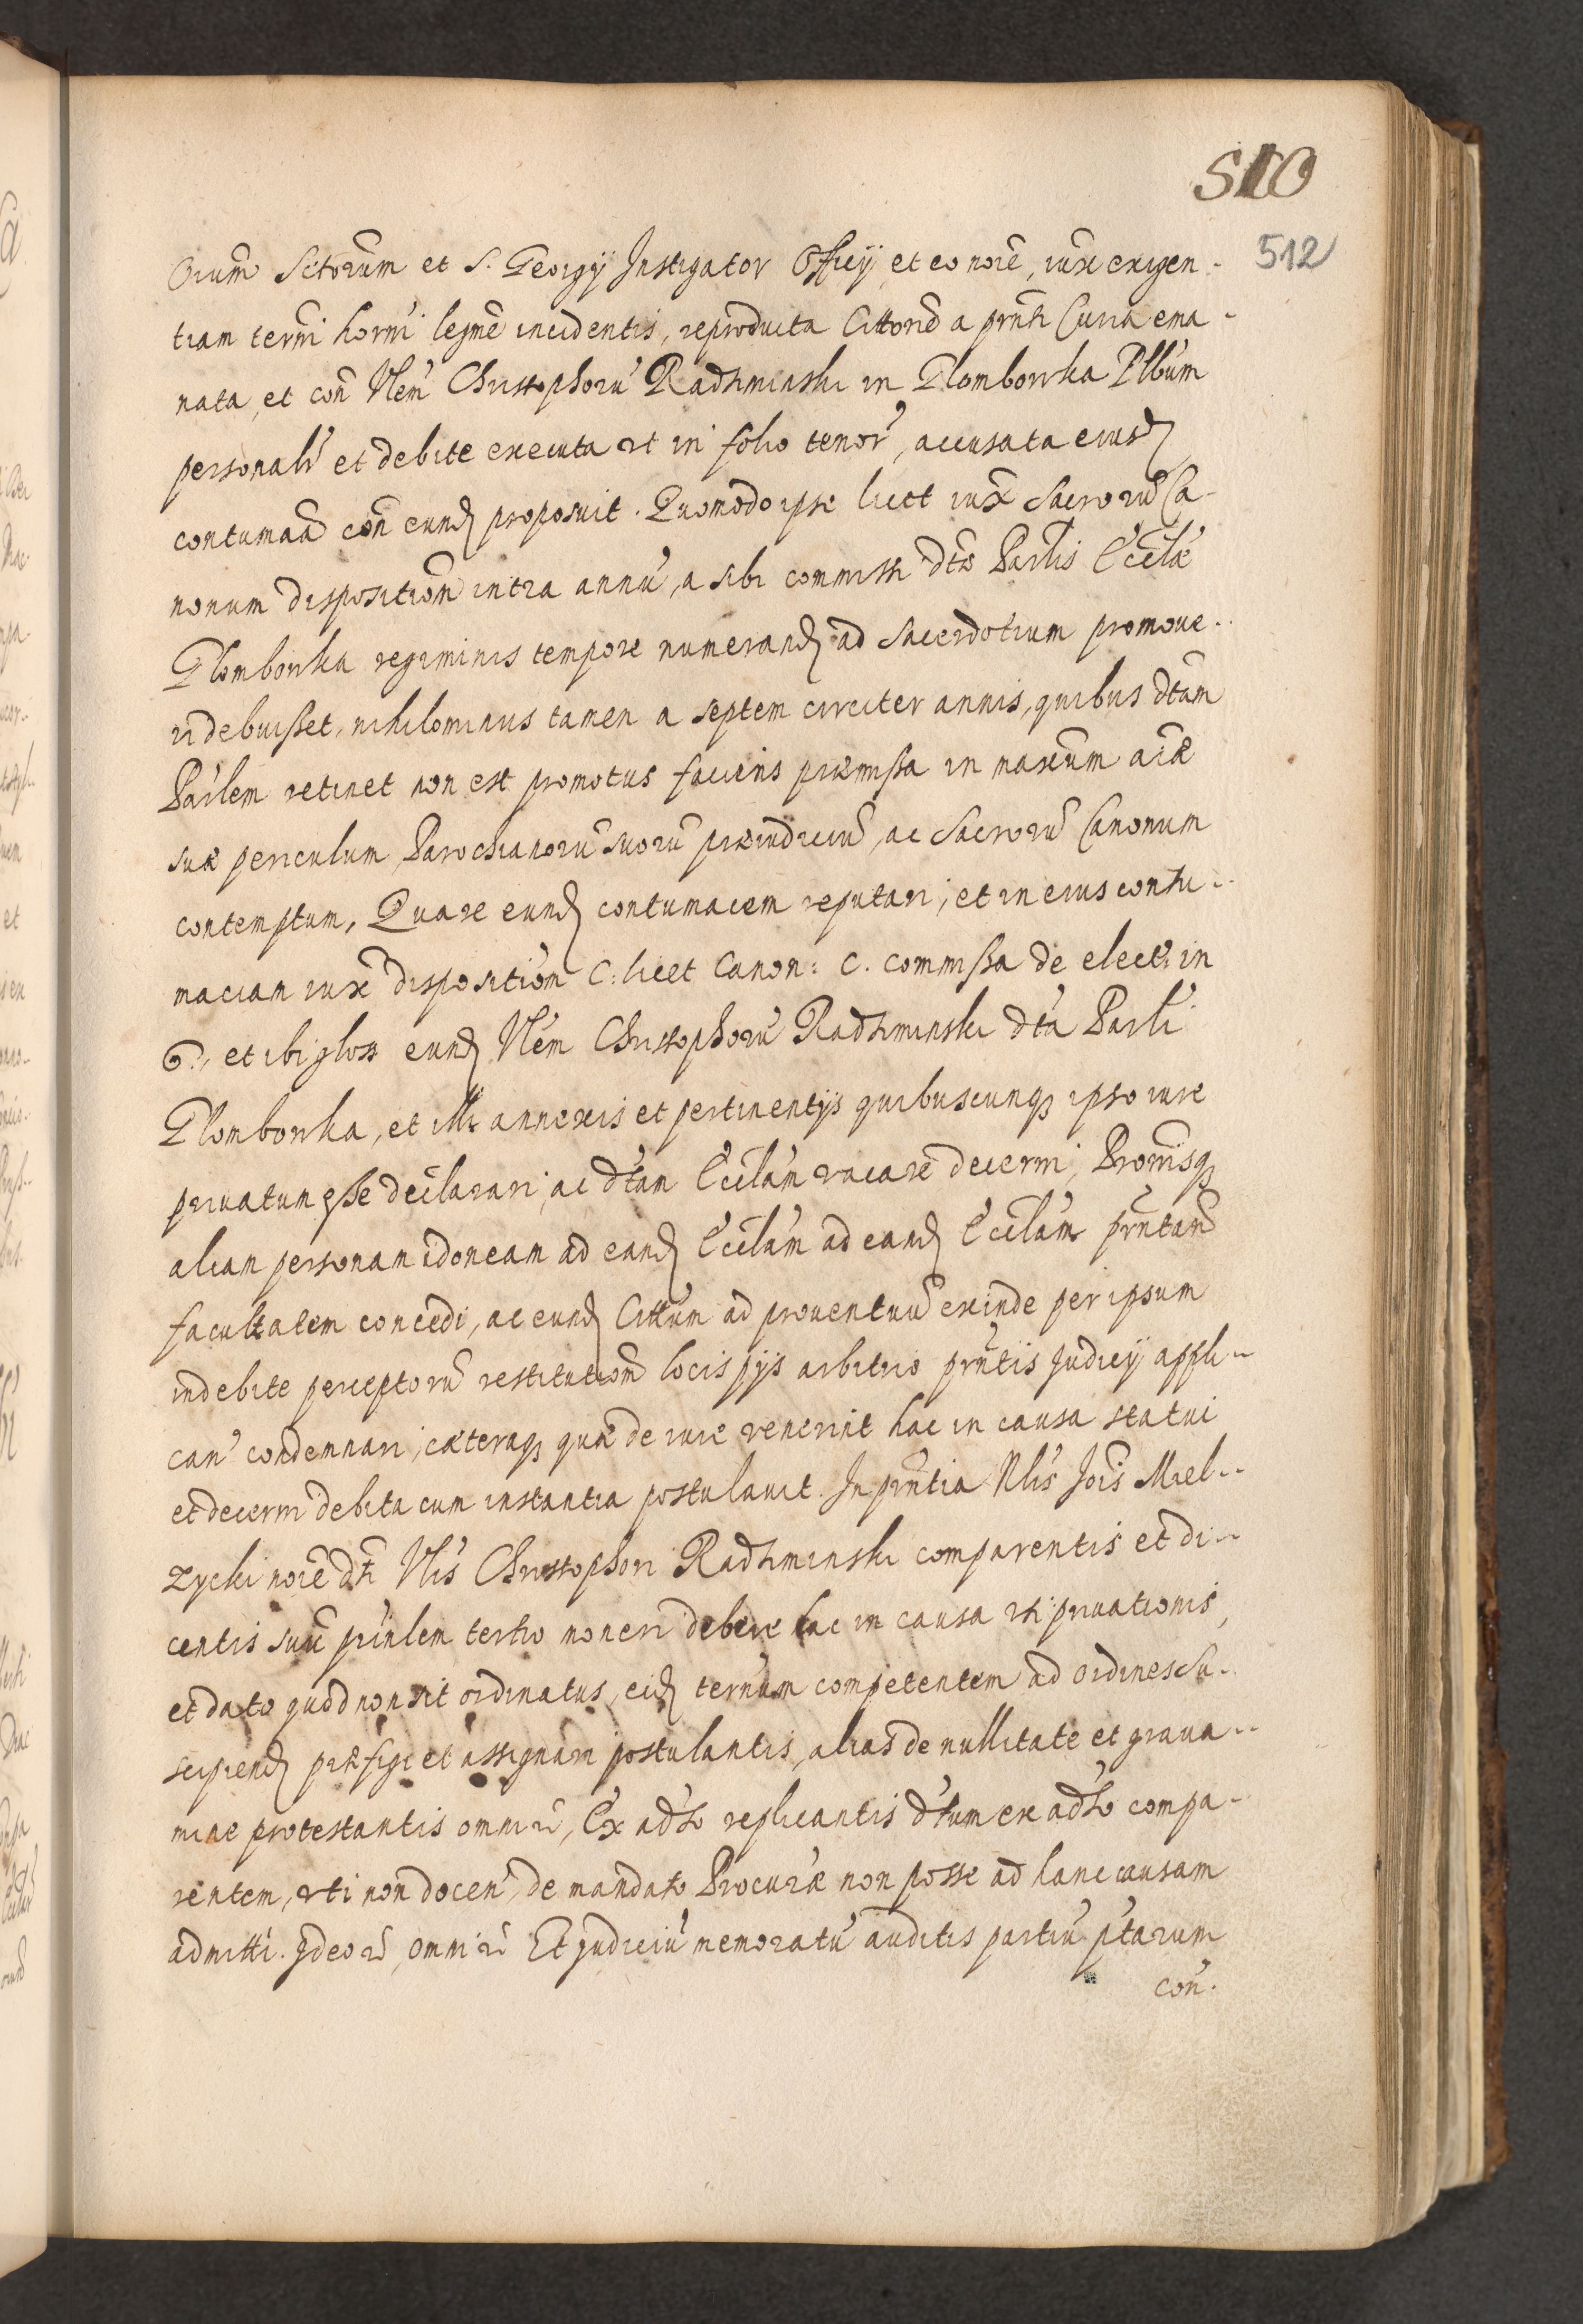 510
512
Oium Sctorum et S. Georgij Instigator Officij et eo noie, iux exigen-
tiam termi horni legme incidentis, reproducta Cittone a prnti Curia ema-
nata, et con Vlem Christophoru Radzminski in Glombowka Plbum
personalr et debite executa vt in folio tenor, accusata eiusd
contumaa con eund proposuit. Quomodo ipse licet iux Sacroru Ca-
nonum disposition intra annu, a sibi commissi dtæ Parlis Ecclæ
Glombowka regiminis tempore numerand ad Sacerdotium promoue-
ri debuisset, nihilominus tamen a septem circiter annis, quibus dtam
Parlem retinet non est promotus faciens præmissa in maxum aiæ
suæ periculum Parochianoru suoru præiudiciu, ac Sacroru Canonum
contemptum, Quare eund contumacem reputari, et in eius contu-
maciam iux disposition C. licet Canon: c. commissa de elect: in
6., et ibi gloss eund Vlem Christophoru Radzminski dta Parli
Glombowka, et illi annexis et pertinentijs quibuscunq ipso iure
priuatum esse declarari, ac dtam Ecclam vacare decerni, Promisq
aliam personam idoneam ad eand Ecclam ad eand Ecclam prntand
facultatem concedi, ac eund Cittum ad prouentuu exinde per ipsum
indebite perceptoru restitution locis pijs arbitrio prntis Judicij appli-
can condemnari, cæteraq quæ de iure venerint hac in causa statui
et decerni debita cum instantia postulauit. In prntia Nlis Jois Miel-
zycki noie dti Vlis Christophori Radzminski comparentis et di-
centis suu prinlem tertio moneri debere hac in causa vti priuationis,
et dato quod non sit ordinatus, eid ternum competentem ad ordines su-
scipiend præfigi et assignari postulantis, alias de nullitate et graua-
mine protestantis omni ri, Ex adso replicantis dtum ex adso compa-
rentem, vti non docen, de mandato Procuræ non posse ad hanc causam
admitti. Ideo ri omni ri Et Judiciu memoratu auditis partiu ptarum
con.